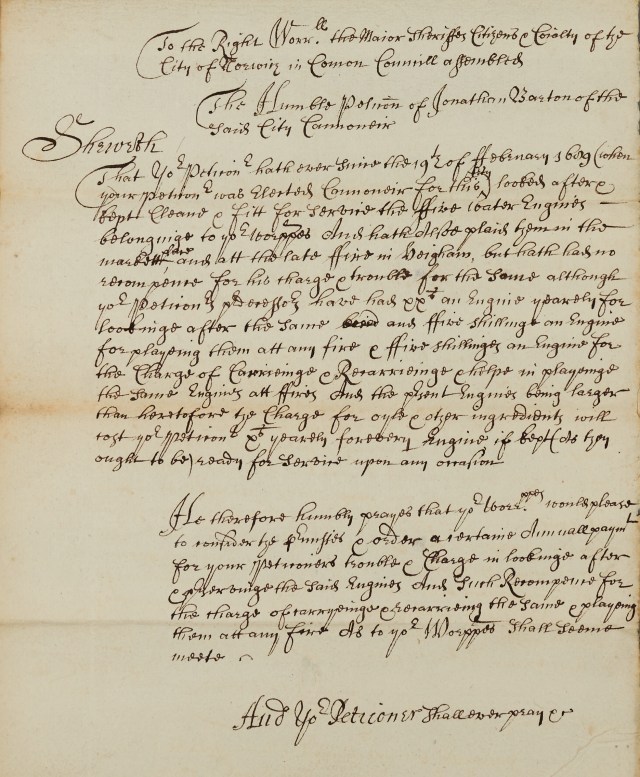 To the Right Worr:ll the Maior Sheriffes Citizens & Coialty of the
City of Norwich in Comon Councill assembled
The Humble Peticon of Jonathan Barton of the
said City Cannoneir
Sheweth
That yor Peticonr hath ever since the 19th of ffebruary 1689 (when
your Peticonr was Elected Cannoneir for this City) looked after &
kept Cleane & fitt for service the ffire water Engines
belonginge to yor Worppes And hath Alsoe plaid them in the
markett place, and att the late ffire in Heigham, but hath had no
recompence for his charge & trouble for the same although
yor Peticonrs predecessors have had xxs an Engine yearely for
lookinge after the same and ffive shillings an Engine
for playeing them att any fire & ffive shillinges an Engine for
the Charge of Carrieinge & Recarrieinge & helpe in playeinge
the same Engines att ffires And the present Engines being larger
than heretofore the Charge for oyle & other ingredients will
cost yor Peticonr xs yearely for every Engine if kept (as they
ought to be) ready for service upon any occasion
He therefore humbly prayes that yor Worr:ppes would please
to consider the premisses & order a certaine Annuall paymt
for your Peticoners trouble & Charge in lookinge after
& preserveinge the said Engines And Such Recompence for
the charge of carryeinge & recarrieing the same & playeing
them att any fire As to yor Worppes Shall Seeme
meete
And Yor Peticoner shall ever pray &c